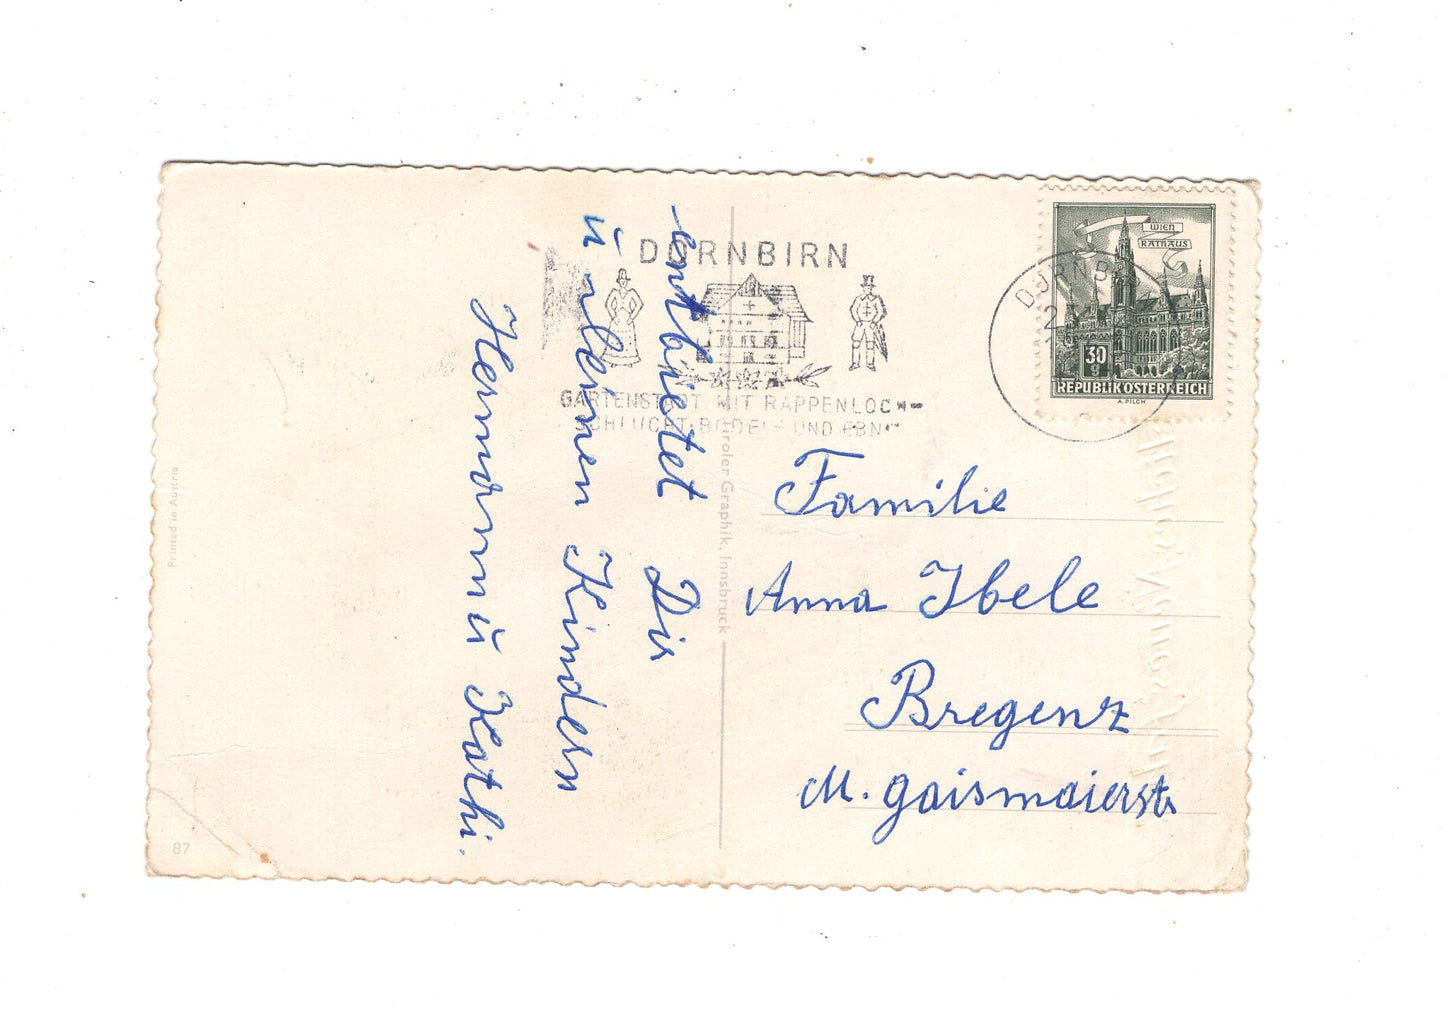 entbietet Dir
u. deinen Kindern
Hermann u Kathi.
DORNBIRN
GARTENSTADT MIT RAPPENLOCH-
SCHLUCHT, BÖDELE UND EBNIT
DORNBIRN
WIEN
RATHAUS
30
g
REPUBLIK ÖSTERREICH
A. PILCH
Familie
Anna Ibele
Bregenz
M. gaismaierstr
Tiroler Graphik, Innsbruck
Printed in Austria
87